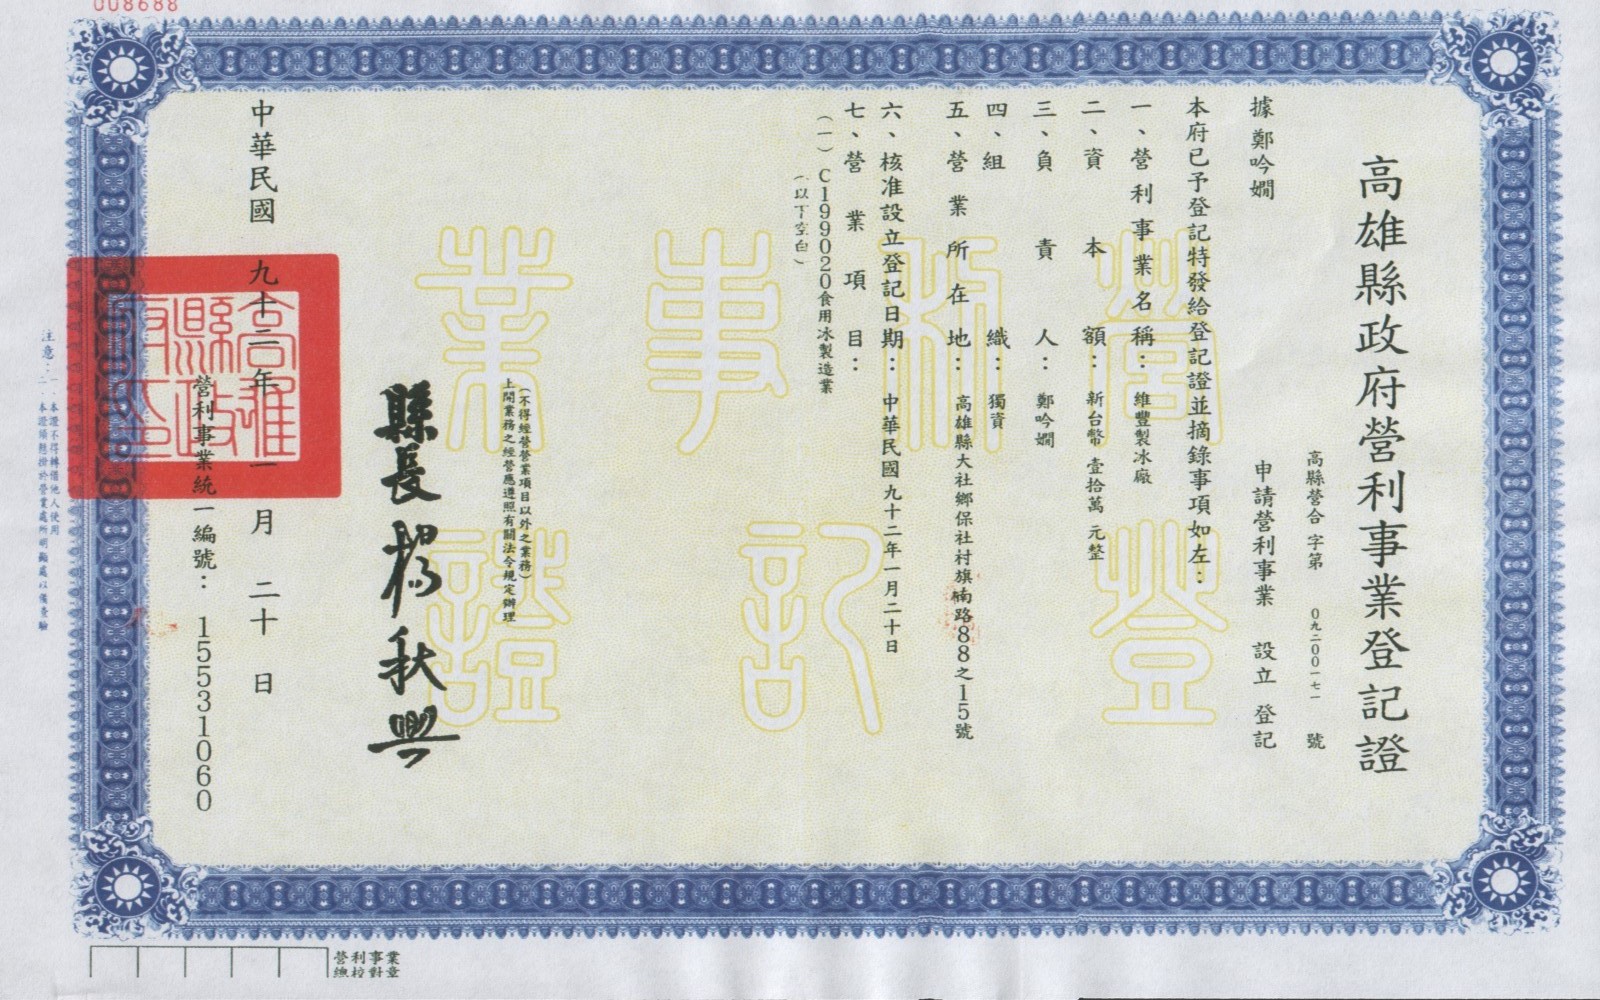 008688
高雄縣政府營利事業登記證
高縣營合 字第 0九二00一七一 號
據 鄭吟嫺 申請營利事業 設立 登記
本府已予登記特發給登記證並摘錄事項如左：
一、營利事業名稱：維豐製冰廠
二、資本額：新台幣 壹拾萬 元整
三、負責人：鄭吟嫺
四、組織：獨資
五、營業所在地：高雄縣大社鄉保社村旗楠路88之15號
六、核准設立登記日期：中華民國九十二年一月二十日
七、營業項目：
（一）C199020食用冰製造業
（以下空白）
（不得經營營業項目以外之業務）
上開業務之經營應遵照有關法令規定辦理
縣長 楊秋興
中華民國 九十二年 一 月 二十 日
營利事業統一編號： 15531060
注意：一、本證不得轉借他人使用
二、本證須懸掛於營業處所明顯處以備查驗
營利事業登記證
高雄縣政府印
營利事業
總校對章